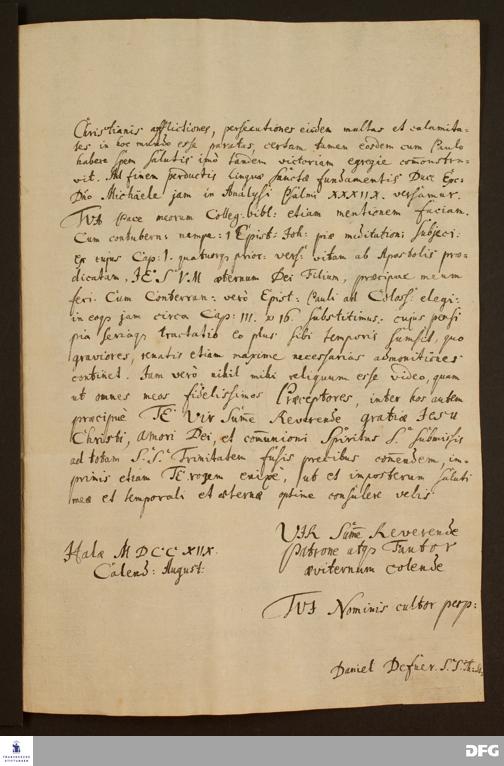 Christianis afflictiones, persecutiones eisdem multas et calamita-
tes in hoc mundo esse paratas, certam tamen eosdem cum Paulo
habere spem salutis imò tandem victoriam egregie com̄onstra-
vit. Ad finem perductis linguæ sanctæ fundamentis Duc: Exc:
Dn̄o Michäele jam in Analysi Psalmi XXXIIX. versamur.
TUA Pace meorum Colleg: bibl: etiam mentionem faciam.
Cum contubern: nempe: 1 Epist: Joh: piæ meditationi subjeci:
Ex cujus Cap: 1. quatuorq₃ prior: vers: vitam ab Apostolis præ-
dicatam, JESUM æternum Dei Filium, præcipue meum
feci. Cum Conterran: verò Epist: Pauli ad Coloss: elegi:
in eoq₃ jam circa Cap: III. v 16 substitimus: cujus
pia seriaq₃ tractatio eo plus sibi temporis sumsit, quo
graviores, renatis etiam maxime necessarias admonitiones
continet. Jam verò nihil mihi reliquum esse video, quam
ut omnes meos fidelissimos Præceptores, inter hos autem
præcipuè TE Vir Sum̄e Reverende gratiæ Jesu
Christi, amori Dei, et com̄unioni Spiritus S. submissis
ad totam S: S: Trinitatem fusis precibus com̄endem, im-
primis etiam TE rogem enixè, ut et imposterum saluti
meæ et temporali et æternæ optime consulere velis
VIR Sum̄e Reverende
Patrone atq₃ Tuutor
æviternum colende
Halæ MDCCXIIX.
Calend: August:
TUI Nominis cultor perp:
Daniel Defner. S: S: Th: St:
FRANCKESCHE
STIFTUNGEN
DFG